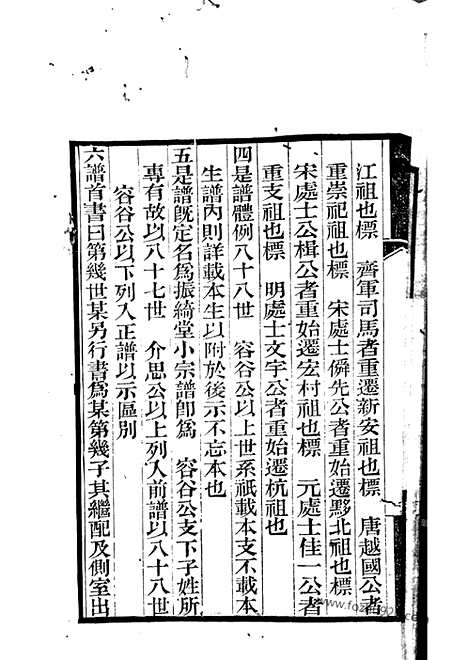 江祖也標　齊軍司馬者重遷新安祖也標　唐越國公者
重崇祀祖也標　宋處士僯先公者重始遷黟北祖也標
宋處士公楫公者重始遷宏村祖也標　元處士佳一公者
重支祖也標　明處士文宇公者重始遷杭祖也
四是譜體例八十八世　容谷公以上世系祇載本支不載本
生譜內則詳載本生以附於後示不忘本也
五是譜旣定名爲振綺堂小宗譜卽爲　容谷公支下子姓所
專有故以八十七世　介思公以上列入前譜以八十八世
容谷公以下列入正譜以示區別
六譜首書曰第幾世某另行書爲某第幾子其繼配及側室出